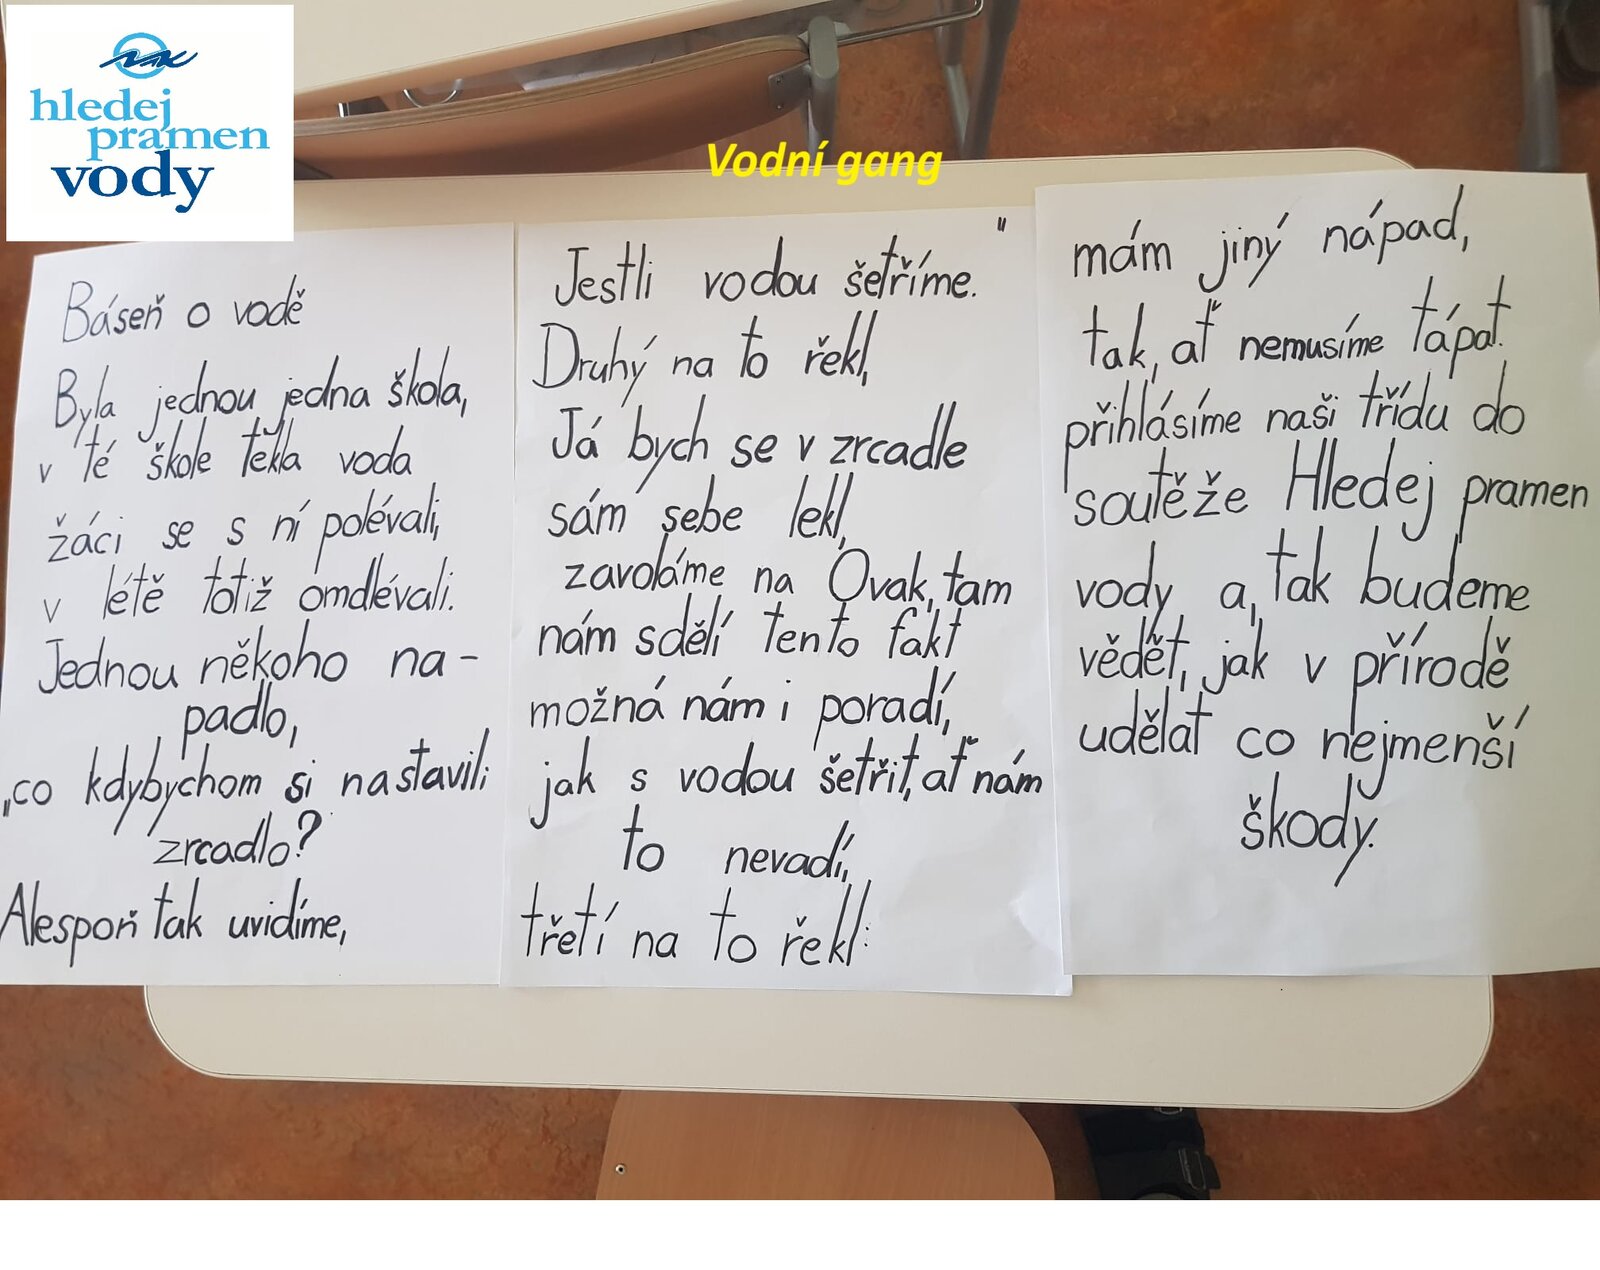 hledej
pramen
vody
Vodní gang
Báseň o vodě
Byla jednou jedna škola,
v té škole tekla voda
žáci se s ní polévali,
v létě totiž omdlévali.
Jednou někoho na-
padlo,
„co kdybychom si nastavili
zrcadlo?
Alespoň tak uvidíme,
Jestli vodou šetříme."
Druhý na to řekl,
Já bych se v zrcadle
sám sebe lekl,
zavoláme na Ovak, tam
nám sdělí tento fakt
možná nám i poradí,
jak s vodou šetřit, ať nám
to nevadí,
třetí na to řekl:
mám jiný nápad,
tak, ať nemusíme tápat.
přihlásíme naši třídu do
soutěže Hledej pramen
vody a, tak budeme
vědět, jak v přírodě
udělat co nejmenší
škody.